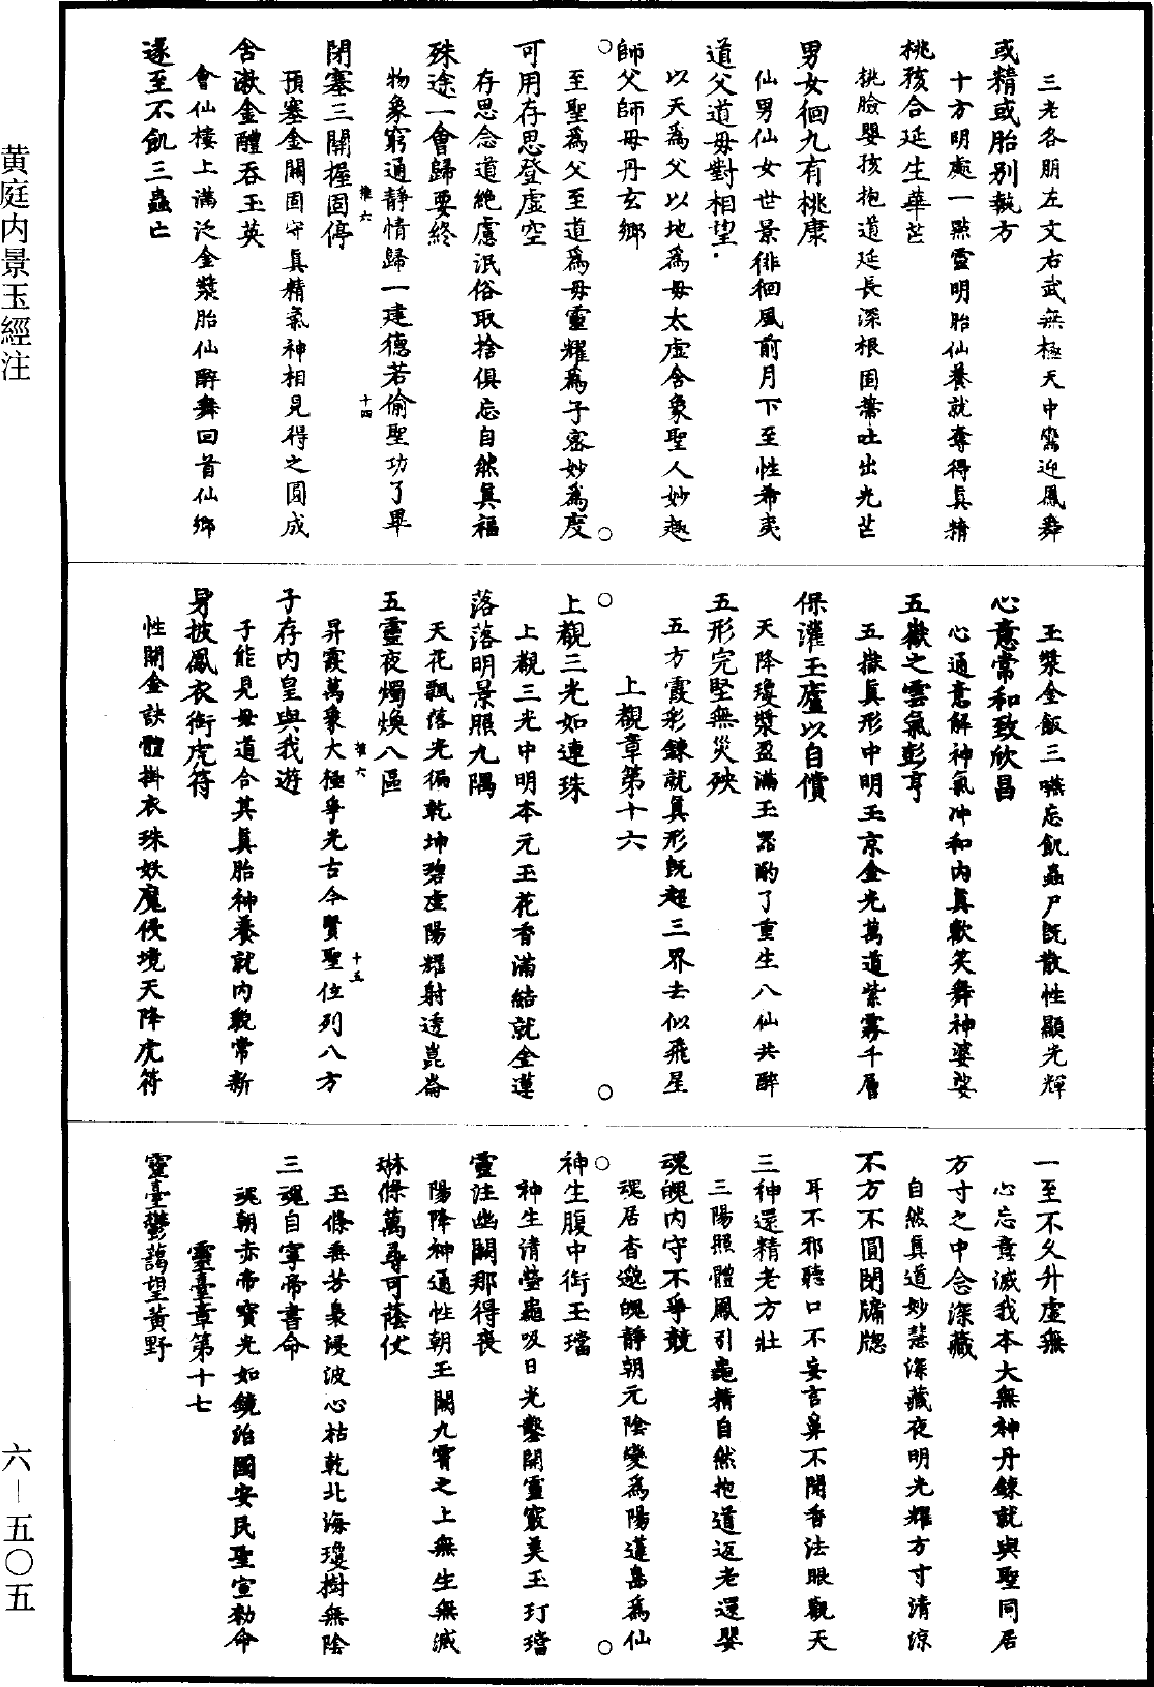 三老各朋左文右武無極天中鸞迎鳳舞
或精或胎別執方
十方明處一點靈明胎仙養就奪得眞精
桃孩合延生華芒
桃臉嬰孩抱道延長深根固蔕吐出光芒
男女徊九有桃康
仙男仙女世景徘徊風前月下至性希夷
道父道母對相望
以天爲父以地爲母太虛含象聖人妙趣
師父師母丹玄鄉
至聖爲父至道爲母靈耀爲子密妙爲度
可用存思登虛空
存思念道絶慮泯俗取捨俱忘自然眞福
殊途一會歸要終
物象窮通靜情歸一建德若偷聖功了畢
推六
十四
閉塞三關握固停
預塞金關固守眞精氣神相見得之圓成
含漱金醴吞玉英
會仙樓上滿泛金漿胎仙醉舞回首仙鄉
遂至不飢三蟲亡
玉漿金飯三嚥忘飢蟲尸旣散性顯光輝
心意常和致欣昌
心通意解神氣冲和內眞歡笑舞神婆娑
五嶽之雲氣彭亨
五嶽眞形中明玉京金光萬道紫霧千層
保灌玉廬以自償
天降瓊漿盈滿玉器酌了重生八仙共醉
五形完堅無災殃
五方霞彩鍊就眞形旣超三界去似飛星
上觀章第十六
上觀三光如連珠
上觀三光中明本元玉花香滿結就金蓮
落落明景照九隅
天花飄落光徧乾坤碧虛陽耀射透崑崙
五靈夜燭煥八區
昇霞萬象大極爭光古今賢聖位列八方
推六
十五
子存內皇與我遊
子能見母道合其眞胎神養就內貌常新
身披鳳衣銜虎符
性開金訣體掛衣珠妖魔侵境天降虎符
一至不久升虛無
心忘意滅我本大無神丹鍊就與聖同居
方寸之中念深藏
自然眞道妙慧深藏夜明光耀方寸清涼
不方不圓閉牖牕
耳不邪聽口不妄言鼻不聞香法眼觀天
三神還精老方壯
三陽照體鳳引龜精自然抱道返老還嬰
魂魄內守不爭競
魂居杳邈魄靜朝元陰變爲陽蓬島爲仙
神生腹中銜玉璫
神生清瑩龜吸日光鑿開靈竅美玉玎璫
靈注幽闕那得喪
陽降神通性朝玉闕九霄之上無生無滅
琳條萬尋可蔭仗
玉條垂芳象浸波心枯乾北海瓊樹無陰
三魂自寧帝書命
魂朝赤帝寶光如鏡治國安民聖宣勑命
靈臺章第十七
靈臺鬱藹望黃野
黃庭內景玉經注
六—五〇五